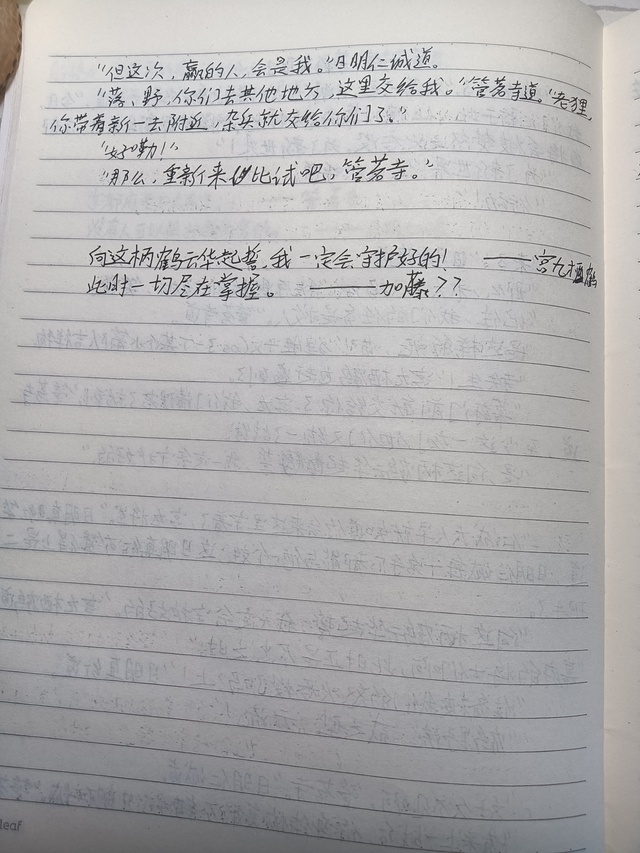 "但这次，赢的人，会是我。"日明仁城道。
"落、野，你们去其他地方，这里交给我。"管茗寺道。"老狸，
你带着新一去附近，杂兵就交给你们了。"
"好嘞！"
"那么，重新来比试吧，管茗寺。"
向这柄鹤云华起誓，我一定会守护好的！ ——宫九栖鹤
此时一切尽在掌握。 ——加藤??
leaf